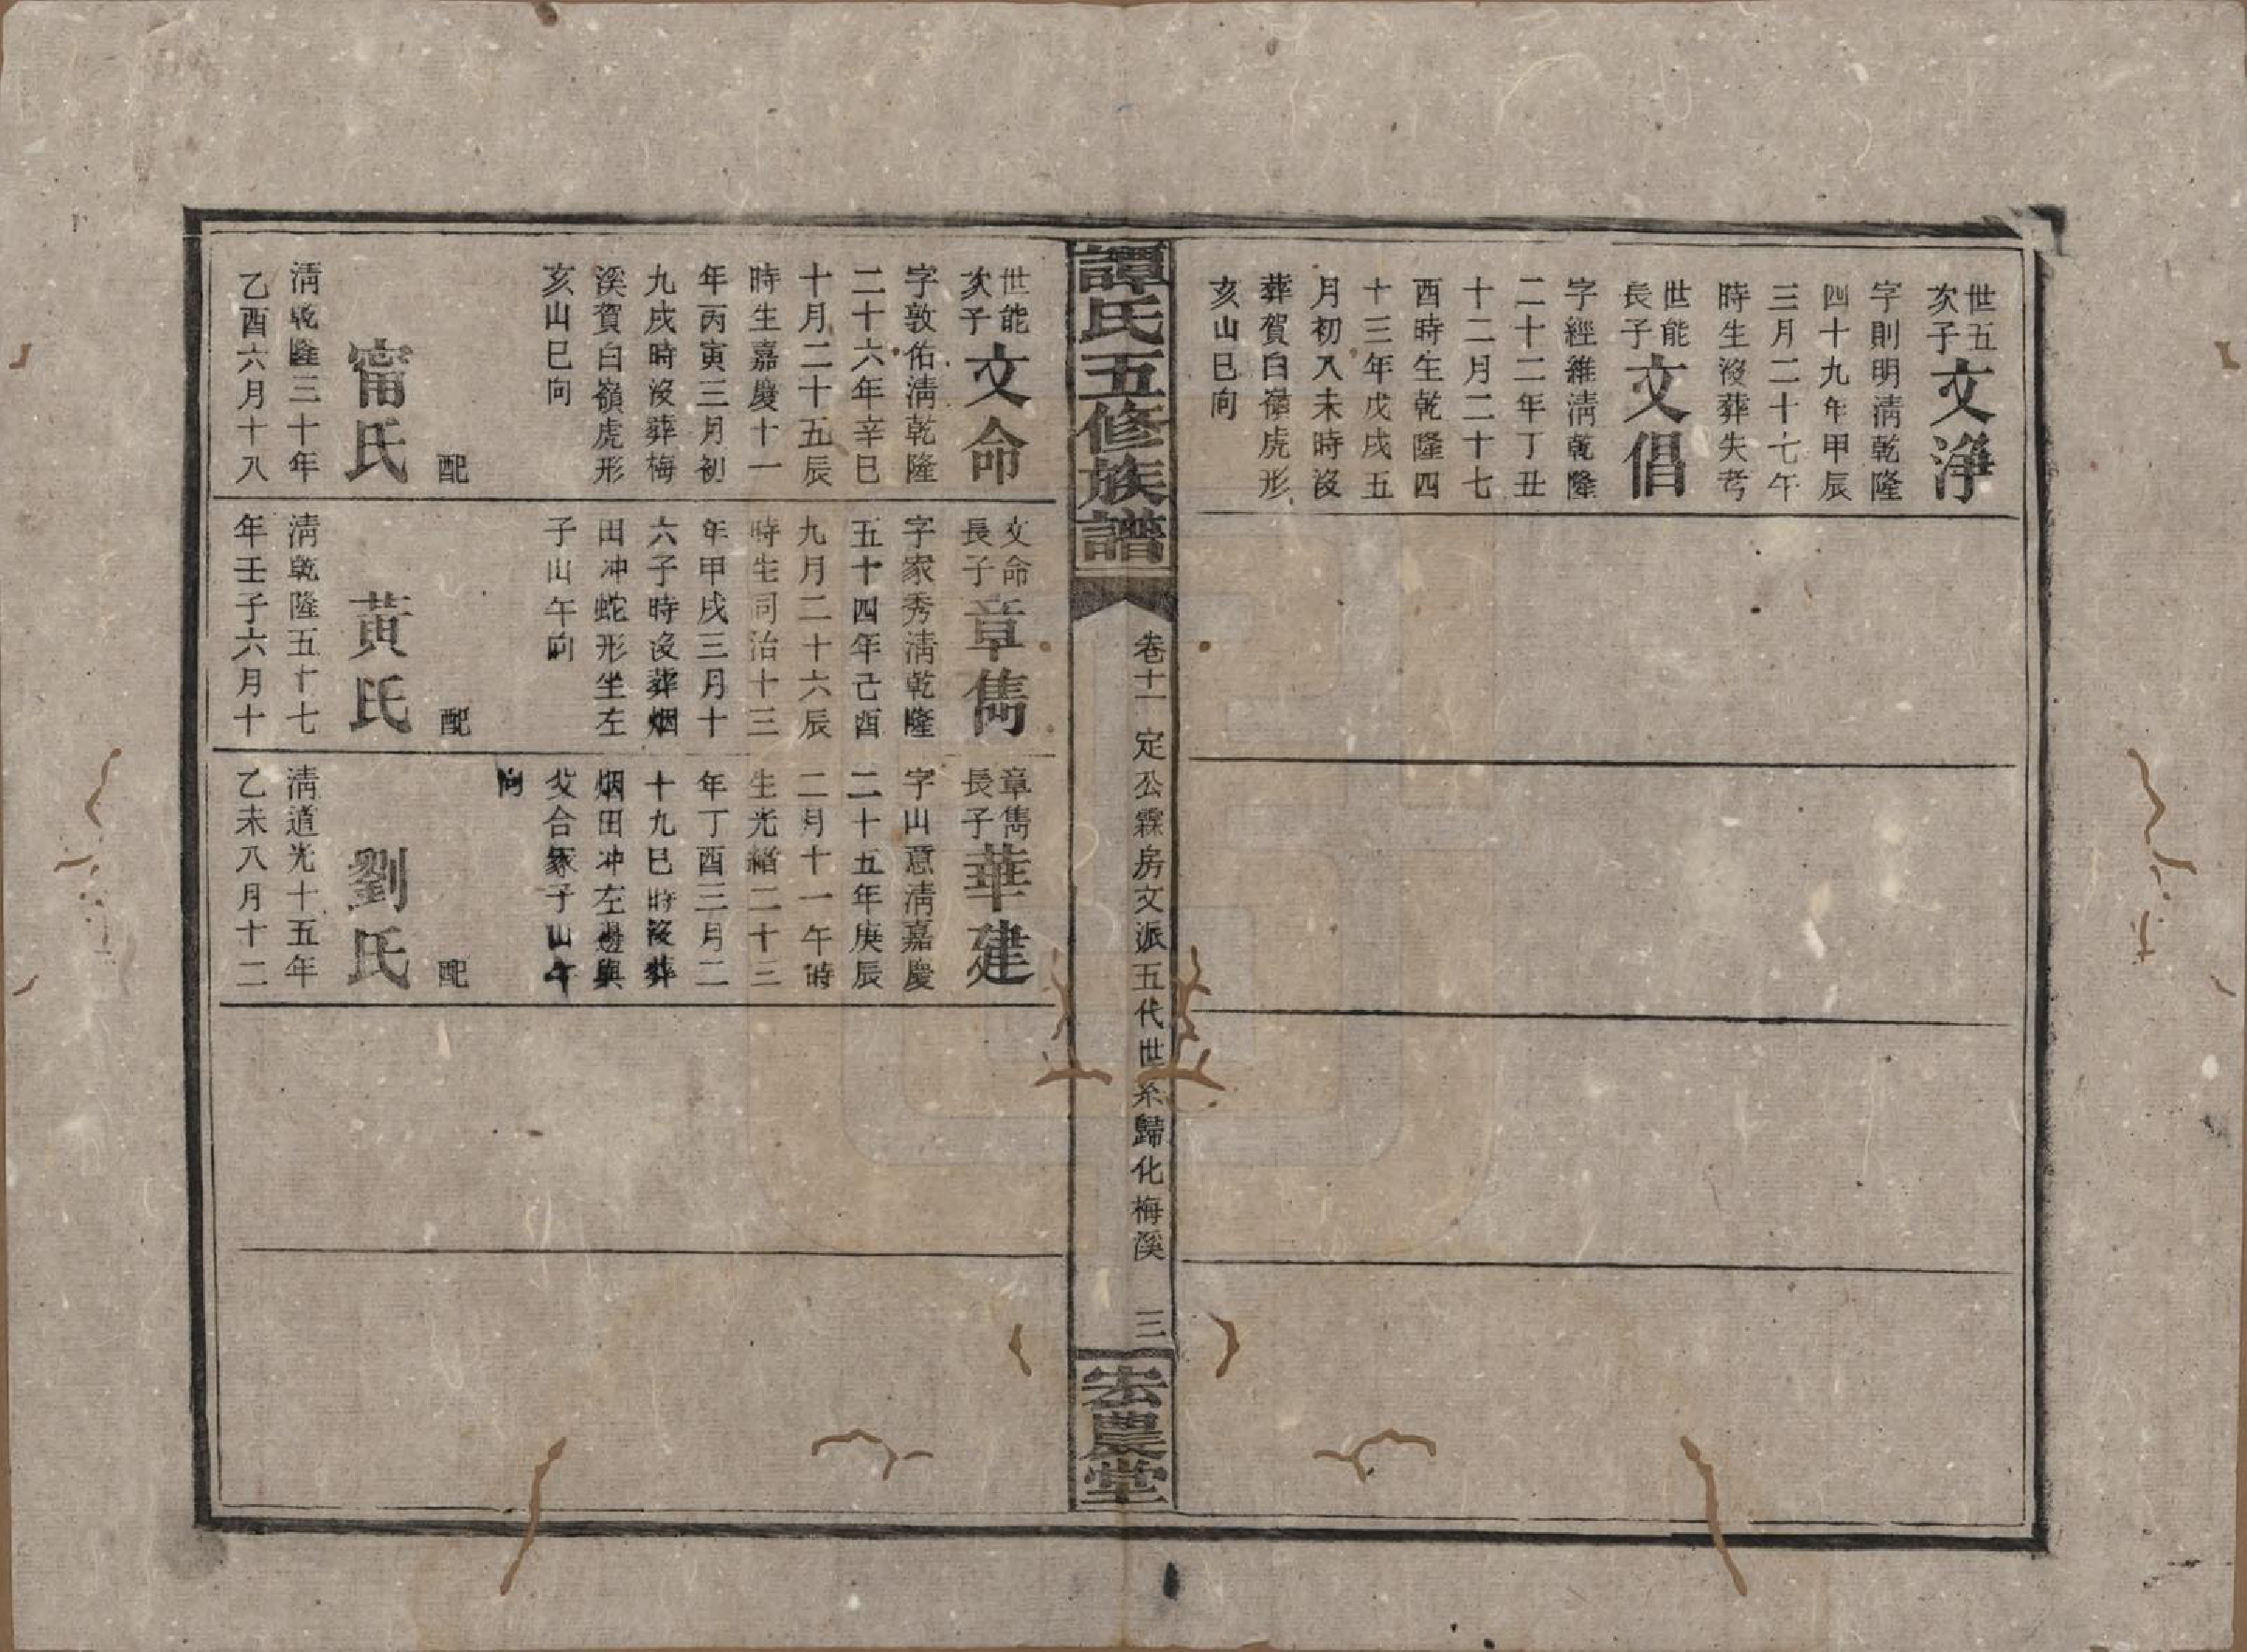 世五
次子
文淨
字則明淸乾隆
四十九年甲辰
三月二十七午
時生沒葬失考
世能
長子
文倡
字經維淸乾隆
二十二年丁丑
十二月二十七
酉時生乾隆四
十三年戊戌五
月初八未時沒
葬賀白嶺虎形
亥山巳向
譚氏五修族譜
卷十一 定公霖房文派五代世系歸化梅溪 三
宏農堂
世能
次子
文命
字敦佑淸乾隆
二十六年辛巳
十月二十五辰
時生嘉慶十一
年丙寅三月初
九戌時沒葬梅
溪賀白嶺虎形
亥山巳向
配
甯氏
淸乾隆三十年
乙酉六月十八
文命
長子
章雋
字家秀淸乾隆
五十四年己酉
九月二十六辰
時生同治十三
年甲戌三月十
六子時沒葬烟
田冲蛇形坐左
子山午向
配
黃氏
淸乾隆五十七
年壬子六月十
章雋
長子
華建
字山意淸嘉慶
二十五年庚辰
二月十一午時
生光緒二十三
年丁酉三月二
十九巳時沒葬
烟田冲左邊與
父合冢子山午
向
配
劉氏
淸道光十五年
乙未八月十二